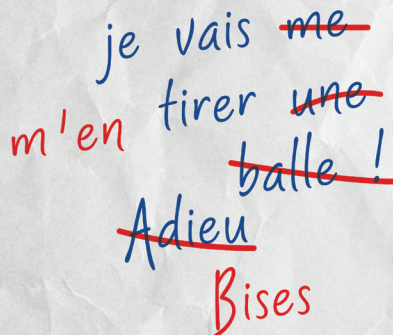 je vais me
m'en tirer une
balle !
Adieu
Bises